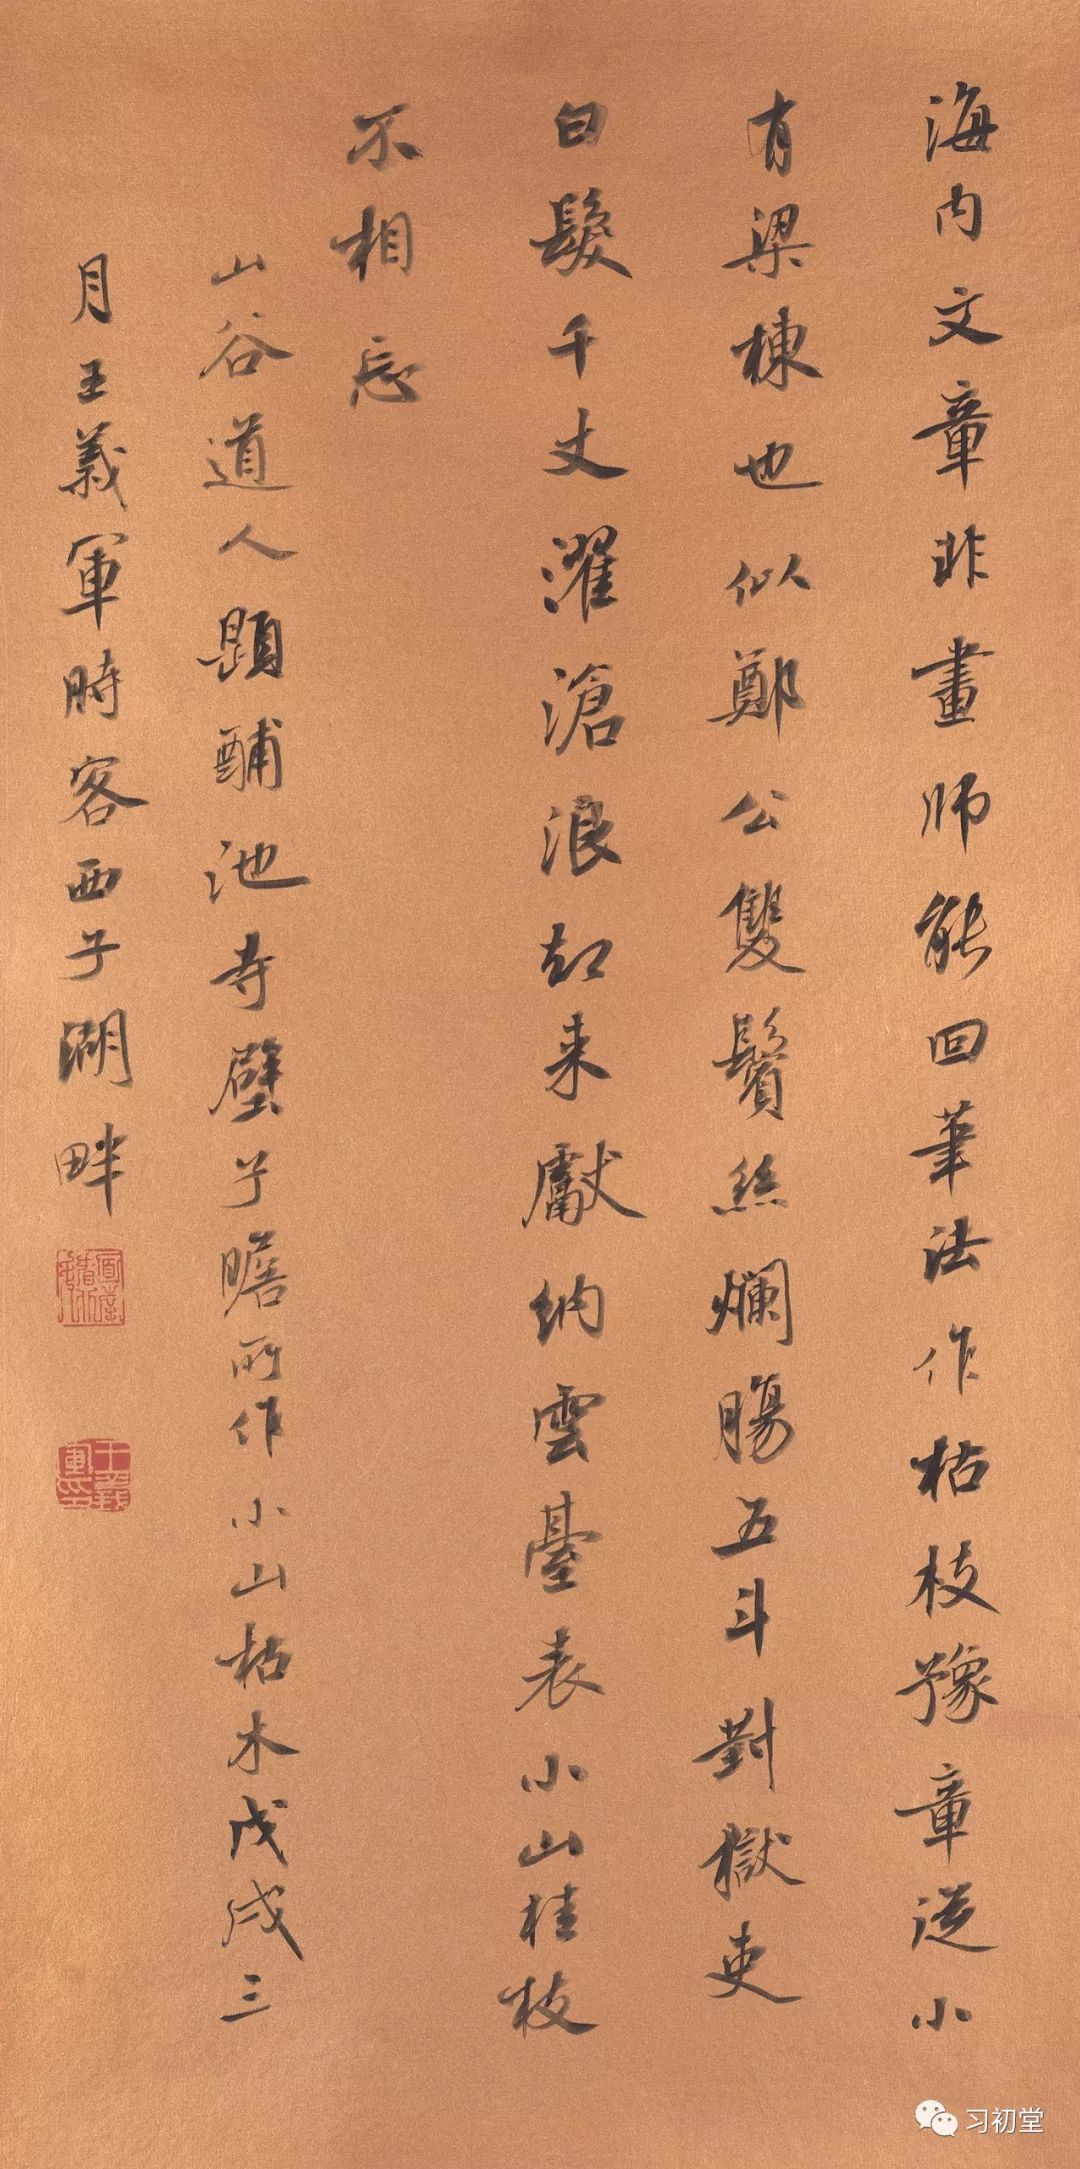 海内文章非畫師能回筆法作枯枝豫章從小
有梁棟也似鄭公雙鬢絲爛腸五斗對獄吏
白髮千丈濯滄浪却来獻納雲臺表小山桂枝
不相忘
山谷道人題酺池寺壁子瞻所作小山枯木戊戌三
月王義軍時客西子湖畔
王義軍印
习初堂